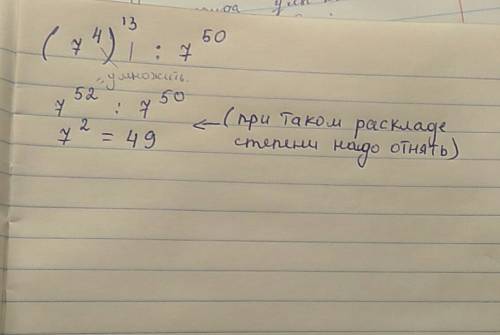 (7⁴)¹³ : 7⁵⁰
умножить.
7⁵² : 7⁵⁰
7² = 49 ← (при таком раскладе
степени надо отнять)